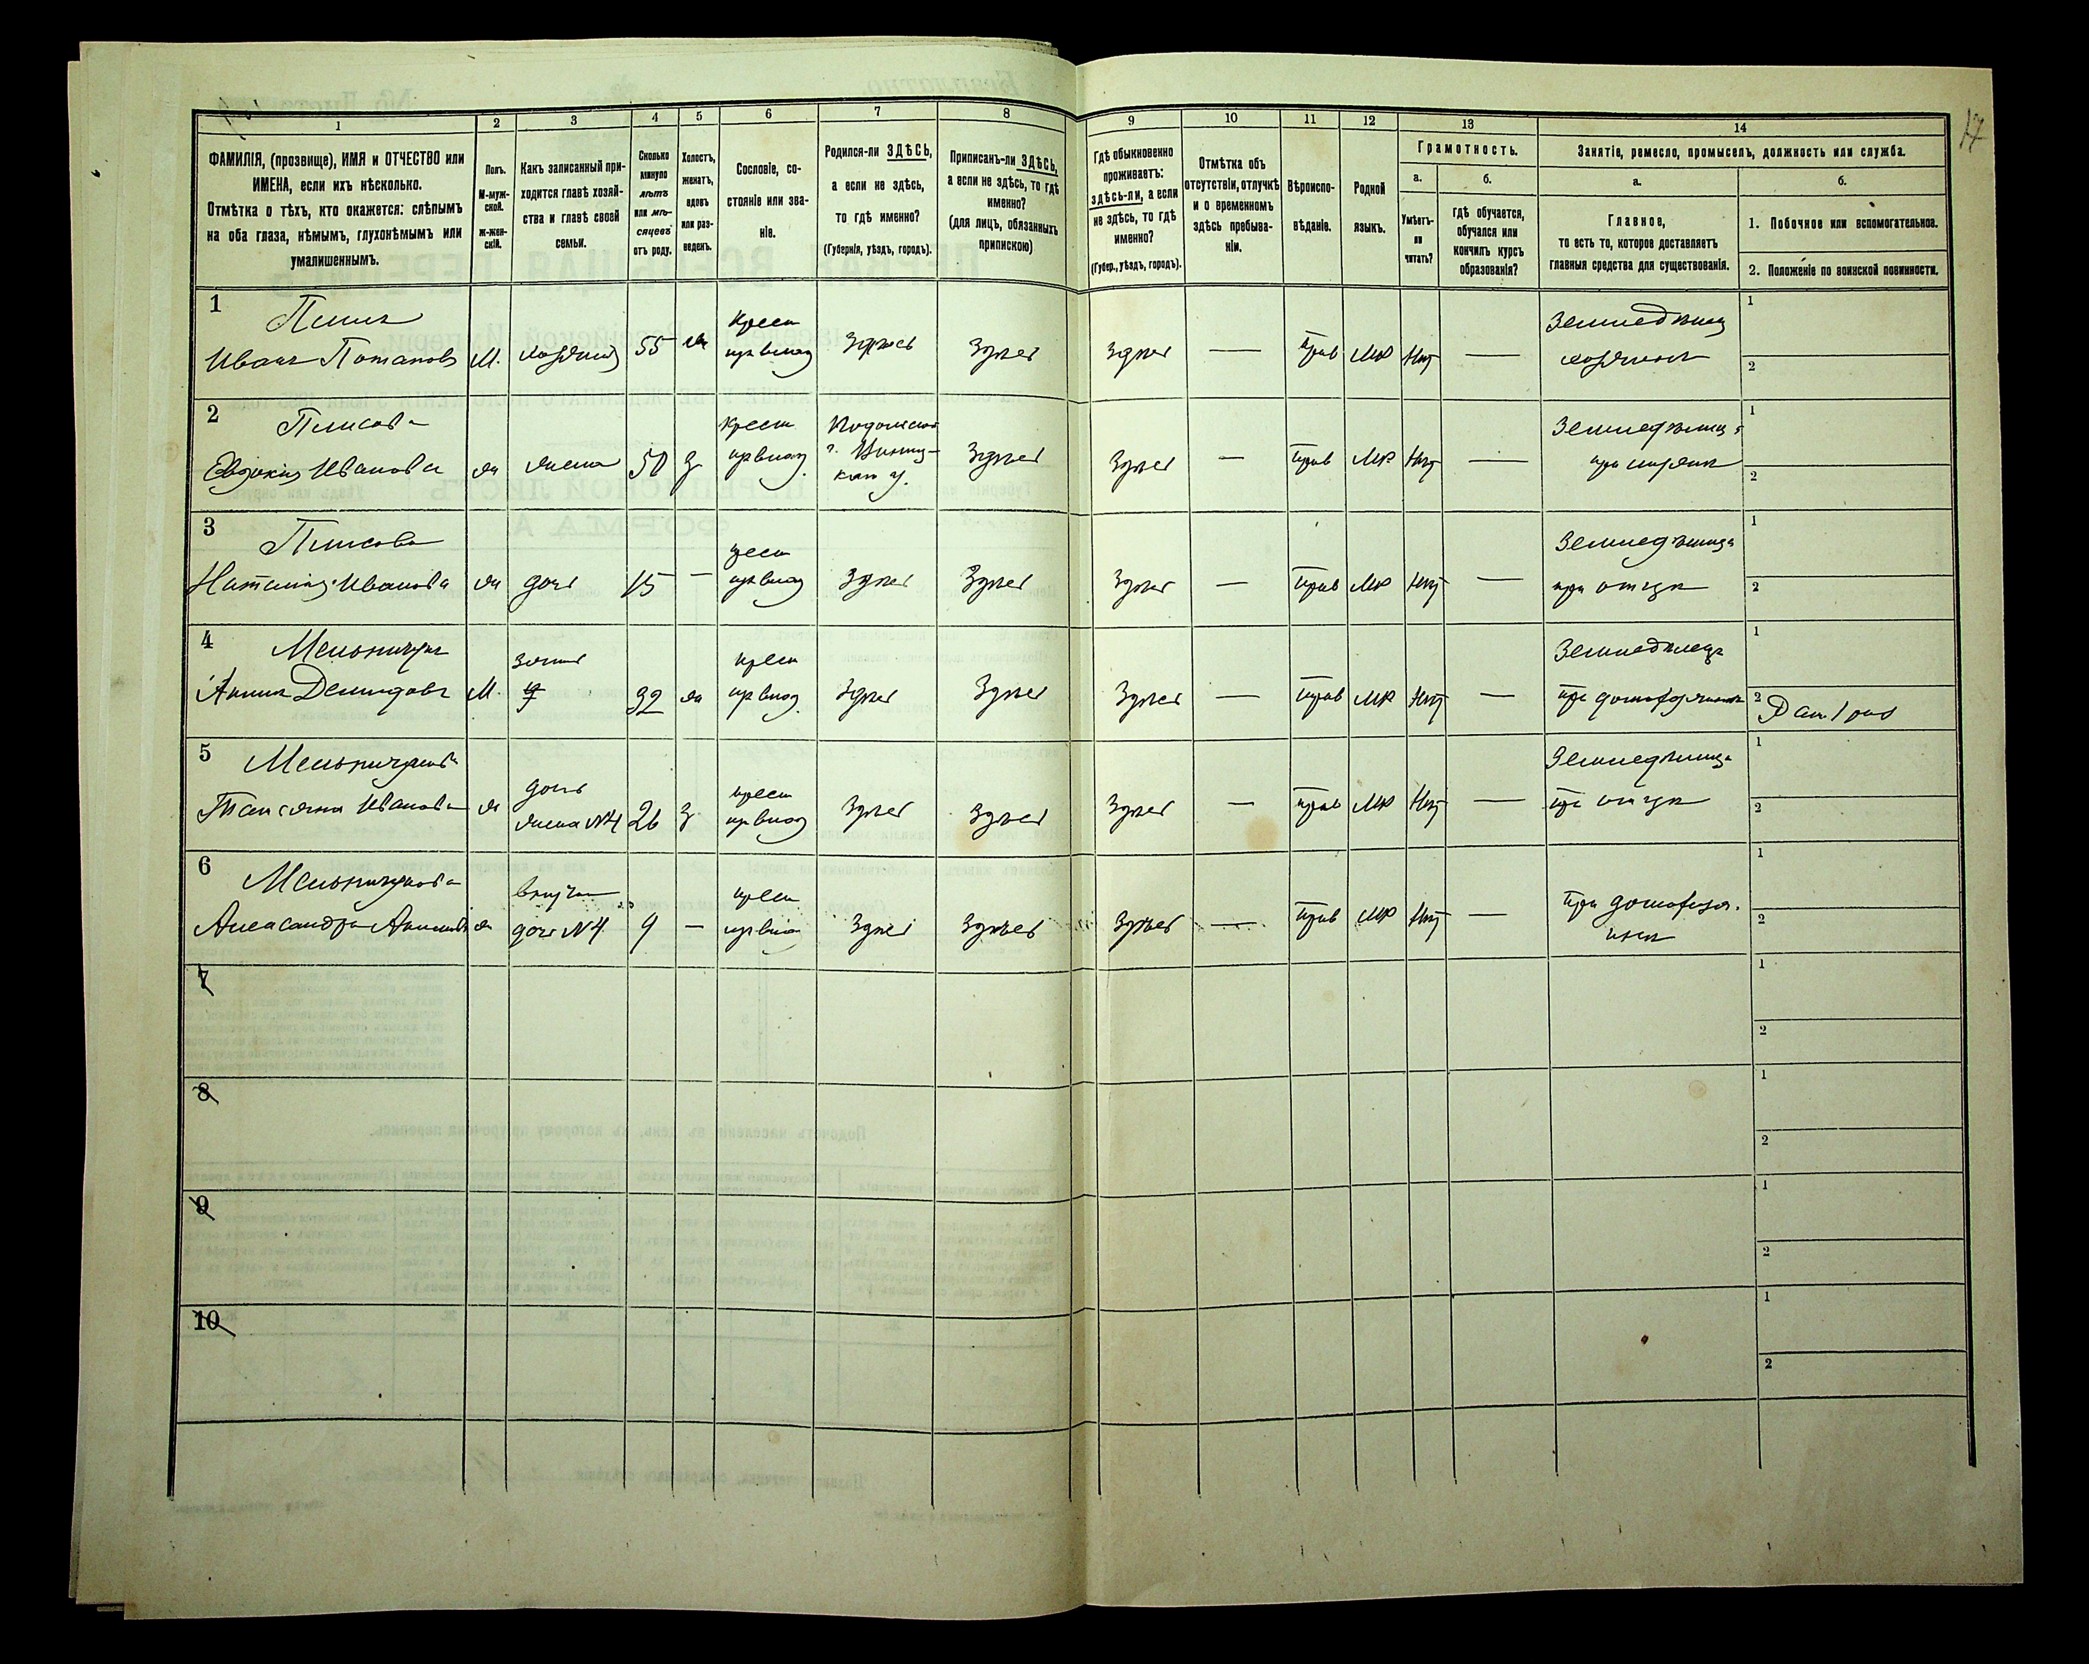 17
1
2
3
4
5
6
7
8
9
10
11
12
13
14
ФАМИЛІЯ, (прозвище), ИМЯ и ОТЧЕСТВО или
ИМЕНА, если ихъ нѣсколько.
Отмѣтка о тѣхъ, кто окажется: слѣпымъ
на оба глаза, нѣмымъ, глухонѣмымъ или
умалишеннымъ.
Полъ.
М-муж-
ской.
ж-жен-
скій.
Какъ записанный при-
ходится главѣ хозяй-
ства и главѣ своей
семьи.
Сколько
минуло
лѣтъ
или мѣ-
сяцевъ
отъ роду.
Холостъ,
женатъ,
вдовъ
или раз-
веденъ.
Сословіе, со-
стояніе или зва-
ніе.
Родился-ли ЗДѢСЬ,
а если не здѣсь,
то гдѣ именно?
(Губернія, уѣздъ, городъ).
Приписанъ-ли ЗДѢСЬ,
а если не здѣсь, то гдѣ
именно?
(для лицъ, обязанныхъ
припискою)
Гдѣ обыкновенно
проживаетъ:
здѣсь-ли, а если
не здѣсь, то гдѣ
именно?
(Губер., уѣздъ, городъ).
Отмѣтка объ
отсутствіи, отлучкѣ
и о временномъ
здѣсь пребыва-
ніи.
Вѣроиспо-
вѣданіе.
Родной
языкъ.
Грамотность.
а.
б.
Умѣетъ-
ли
читать?
гдѣ обучается,
обучался или
кончилъ курсъ
образованія?
Занятіе, ремесло, промыселъ, должность или служба.
а.
б.
Главное,
то есть то, которое доставляетъ
главныя средства для существованія.
1. Побочное или вспомогательное.
2. Положеніе по воинской повинности.
1
Иванъ Потаповъ
М.
55
Крест
Здѣсь
Здѣсь
Здѣсь
—
Прав
МР
Нѣт
—
Земледѣлец
хозяинъ
1
2
2
Плисова
Евдокія Иванова
ж
жена
50
Крест
Подольской
г. Винниц-
каго у.
Здѣсь
Здѣсь
—
Прав
МР
Нѣт
—
Земледѣлица
при мужѣ
1
2
3
Плисова
Наталія Иванова
ж
дочь
15
—
крест
Здѣсь
Здѣсь
Здѣсь
—
Прав
МР
Нѣт
—
Земледѣлица
при отцѣ
1
2
4
Мельничукъ
Демидовъ
М.
зять
32
ж
крест
Здѣсь
Здѣсь
Здѣсь
—
Прав
МР
Нѣт
—
Земледѣлецъ
при
1
2
5
Мельничукова
Татьяна Иванова
ж
дочь
жена №4
26
З
крест
Здѣсь
Здѣсь
Здѣсь
—
Прав
МР
Нѣт
—
Земледѣлица
при отцѣ
1
2
6
Мельничукова
Александра
ж
внучка
дочь №4
9
—
крест
Здѣсь
Здѣсь
Здѣсь
—
Прав
МР
Нѣт
—
При домохозя-
инѣ
1
2
7
1
2
8
1
2
9
1
2
10
1
2